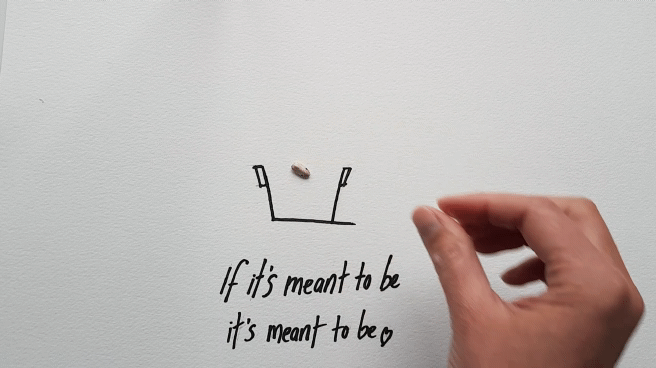 If it's meant to be
it's meant to be♡